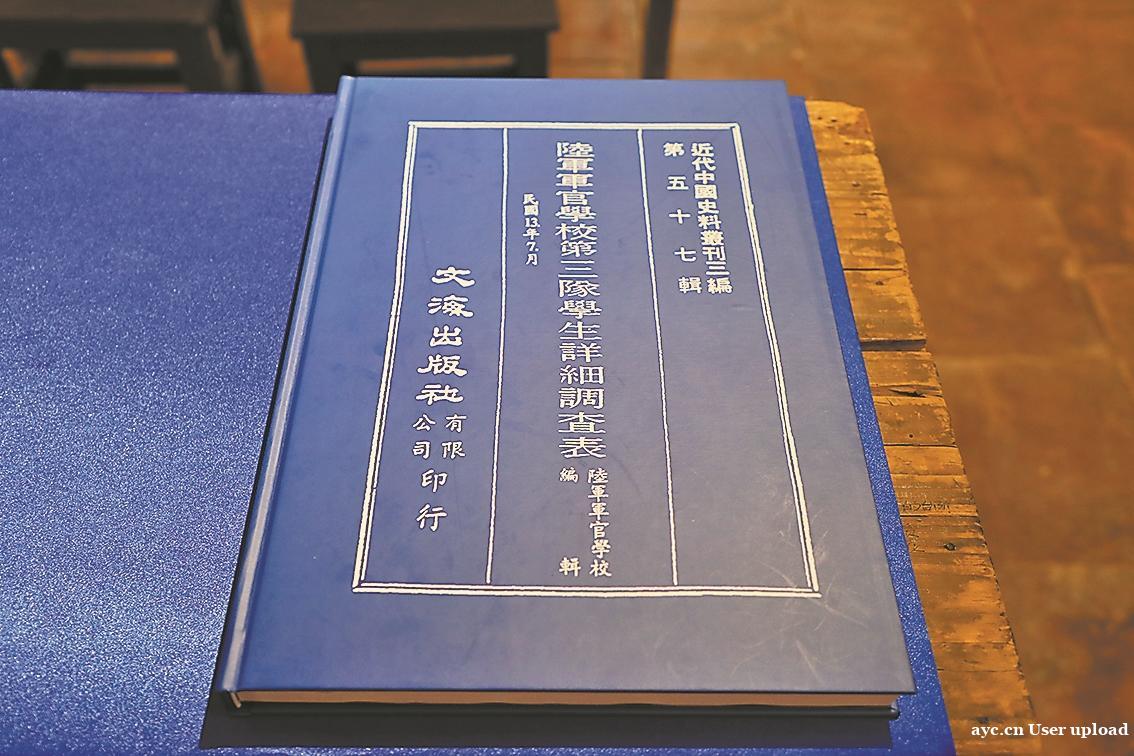 近代中國史料叢刊三編
第五十七輯
陸軍軍官學校第三隊學生詳細調查表
陸軍軍官學校
編輯
民國13年7.月
文海出版社
有限
公司
印行
ayc.cn User upload